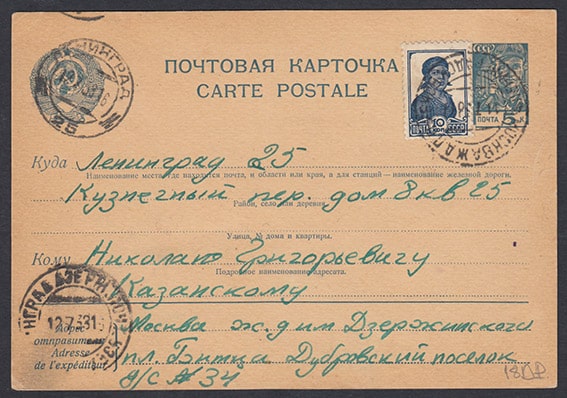 ЛЕНИНГРАД
25
ПОЧТОВАЯ КАРТОЧКА
CARTE POSTALE
10 КОП.
ПОЧТА СССР
СССР
ПОЧТА
МОСКВА
Куда Ленинград 25
Наименование места, где находится почта, и области или края, а для станций — наименование железной дороги.
Кузнечный пер. дом 8 кв 25
Район, село или деревня.
Улица, № дома и квартиры.
Кому Николаю Григорьевичу
Подробное наименование адресата.
Казанскому
Адрес отправителя
Adresse de l'expéditeur
Москва ж.д им Дзержинского
пл. Битца Дубровский поселок
д/с № 34